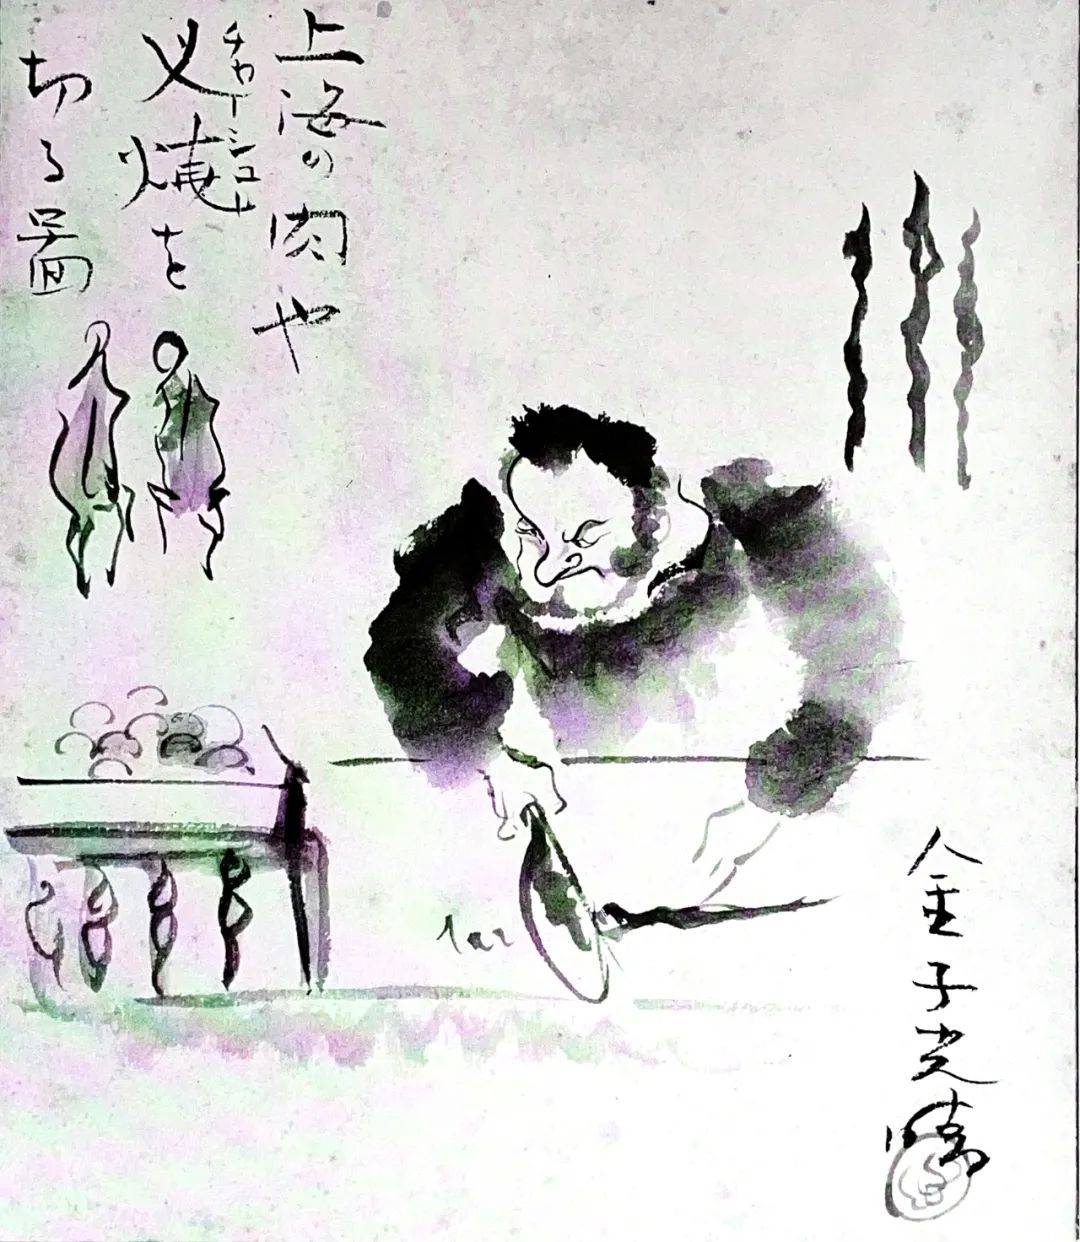 上海の肉や
叉焼を
チャーシュー
切る図
金子光晴